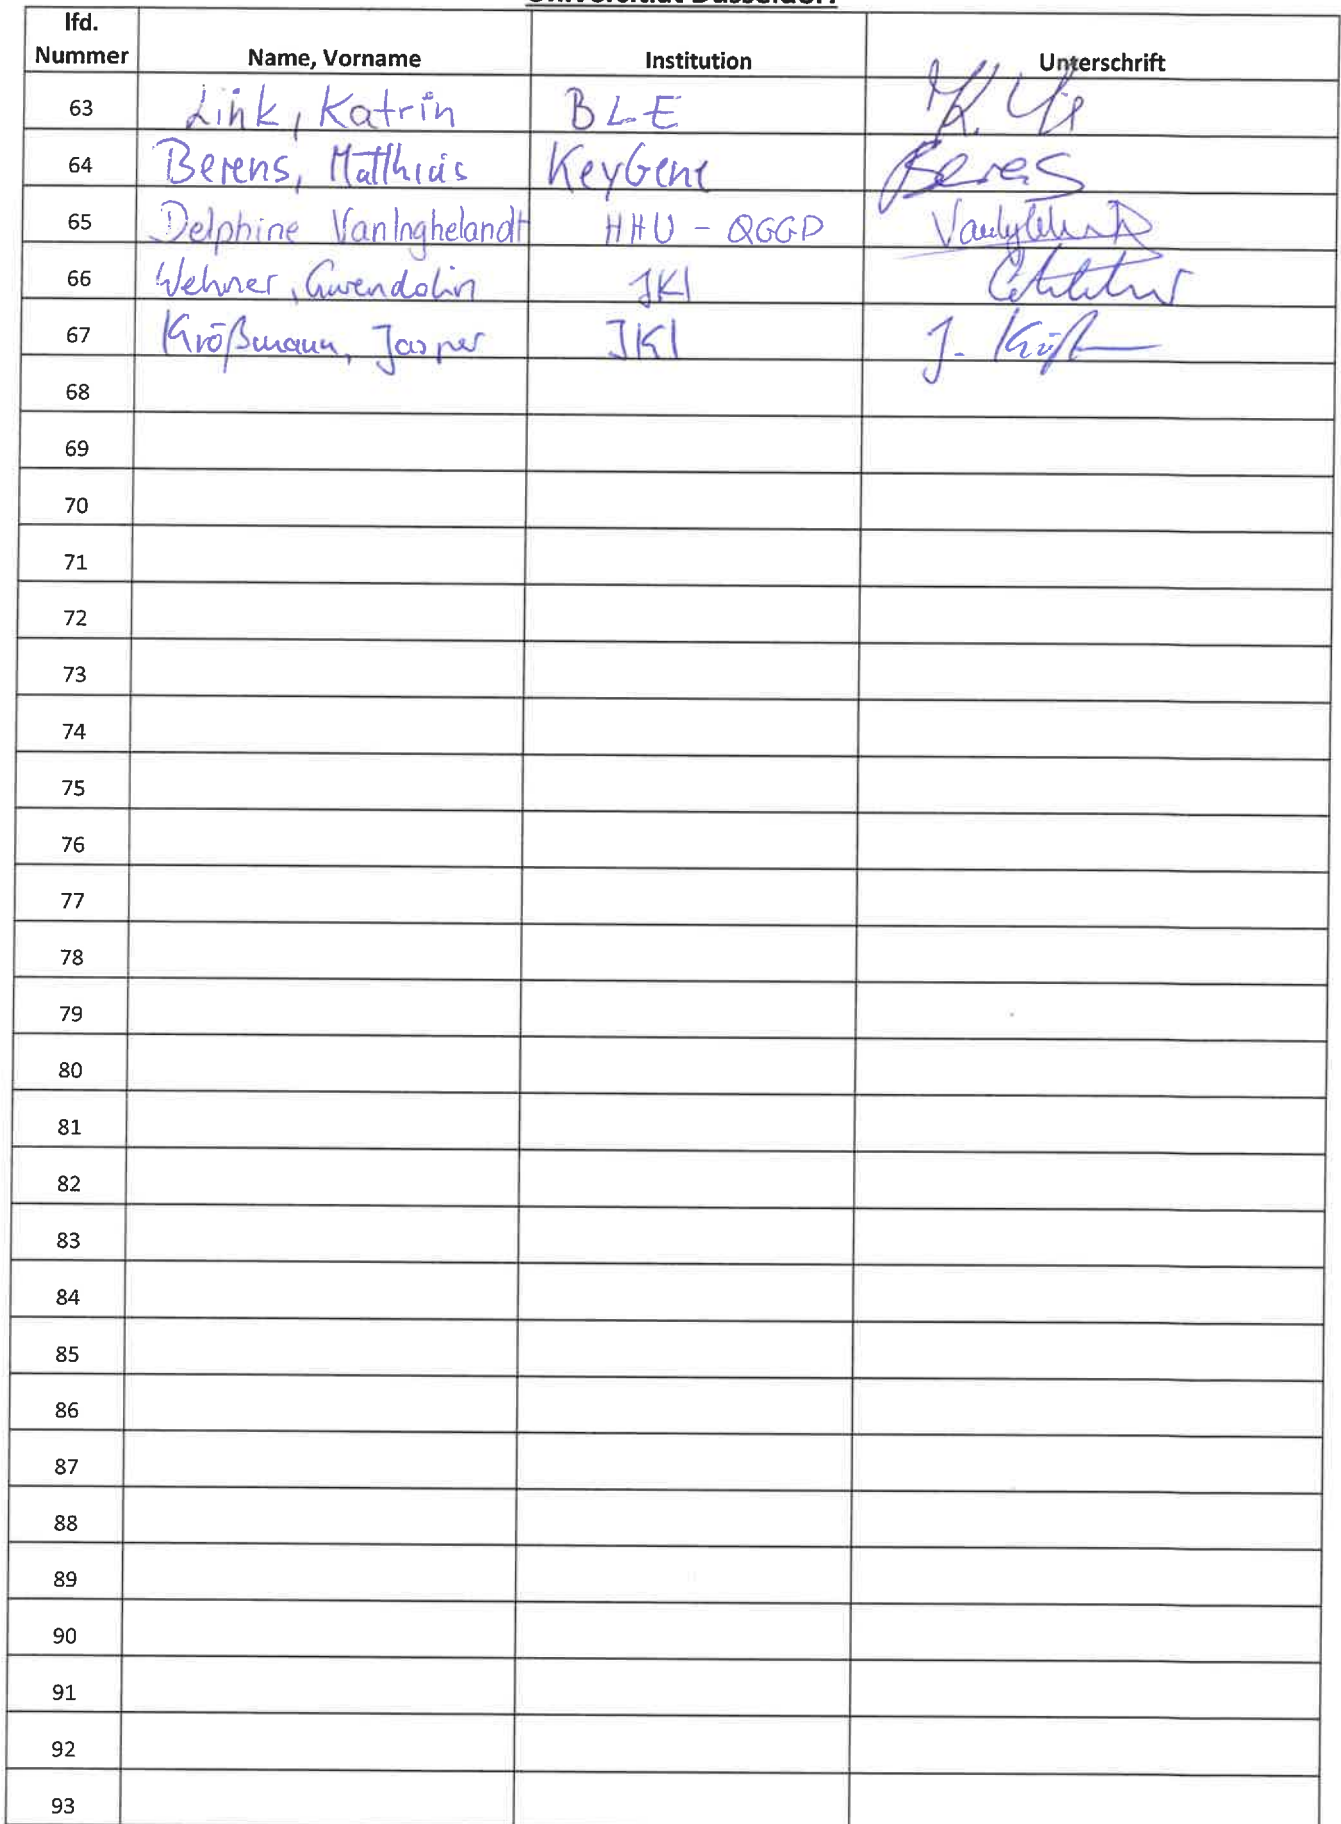 lfd.
Nummer Name, Vorname Institution Unterschrift
63 Link, Katrin BLE
64 Berens, Matthias KeyGene Berens
65 Delphine VanInghelandt HHU - QGGD
66 Wehner, Gwendolin JKI
67 Kroßmann, Jasper JKI J.
68
69
70
71
72
73
74
75
76
77
78
79
80
81
82
83
84
85
86
87
88
89
90
91
92
93